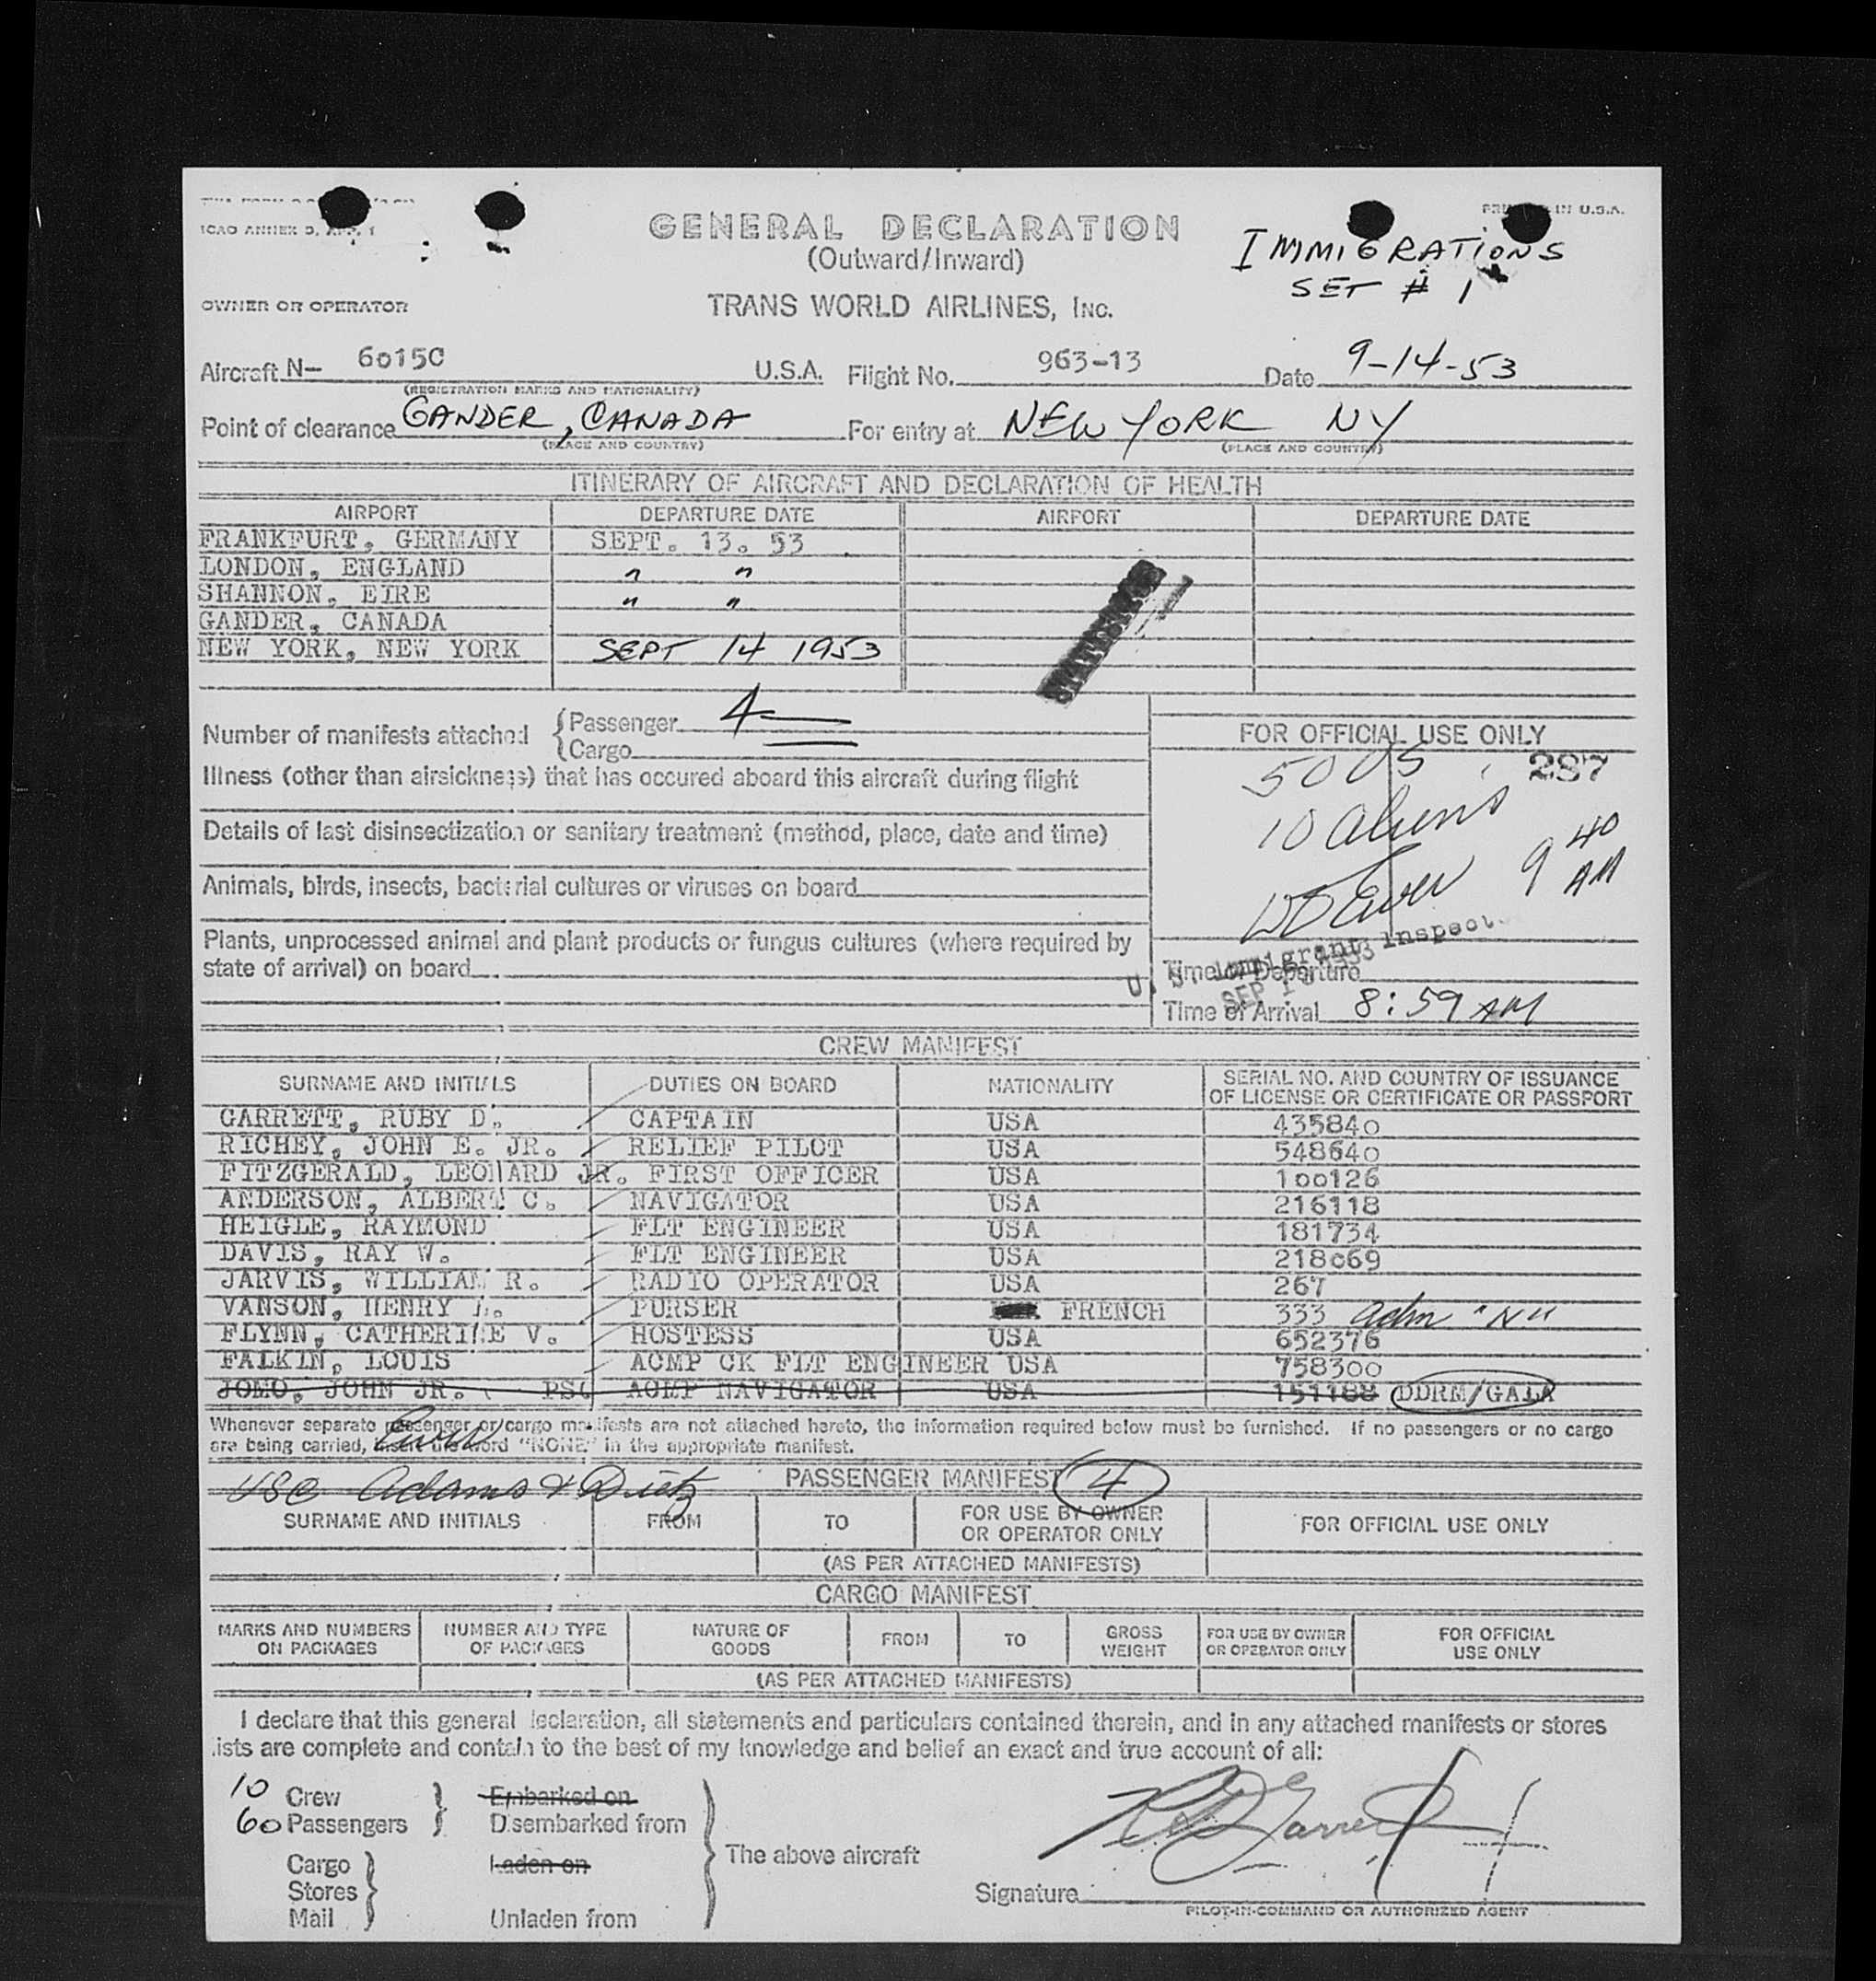 ICAO ANNEX 9, APP. 1
PRINTED IN U.S.A.
GENERAL DECLARATION
(Outward/Inward)
IMMIGRATIONS
SET # 1
OWNER OR OPERATOR
TRANS WORLD AIRLINES, INC.
Aircraft N- 6015C U.S.A. Flight No. 963-13 Date 9-14-53
(REGISTRATION MARKS AND NATIONALITY)
Point of clearance GANDER, CANADA For entry at NEW YORK NY
(PLACE AND COUNTRY) (PLACE AND COUNTRY)
ITINERARY OF AIRCRAFT AND DECLARATION OF HEALTH
AIRPORT DEPARTURE DATE AIRPORT DEPARTURE DATE
FRANKFURT, GERMANY SEPT. 13. 53
LONDON, ENGLAND " "
SHANNON, EIRE " "
GANDER, CANADA
NEW YORK, NEW YORK SEPT 14 1953
Number of manifests attached { Passenger 4
Cargo
FOR OFFICIAL USE ONLY
50 US 287
10 aliens
9 40 AM
Illness (other than airsickness) that has occured aboard this aircraft during flight
Details of last disinsectization or sanitary treatment (method, place, date and time)
Animals, birds, insects, bacterial cultures or viruses on board
Plants, unprocessed animal and plant products or fungus cultures (where required by
state of arrival) on board
U. S. Immigrant Inspector
Time of Departure
Time of Arrival 8:59 AM
CREW MANIFEST
SURNAME AND INITIALS DUTIES ON BOARD NATIONALITY SERIAL NO. AND COUNTRY OF ISSUANCE
OF LICENSE OR CERTIFICATE OR PASSPORT
GARRETT, RUBY D. CAPTAIN USA 435840
RICHEY, JOHN E. JR. RELIEF PILOT USA 548640
FITZGERALD, LEONARD JR. FIRST OFFICER USA 100126
ANDERSON, ALBERT C. NAVIGATOR USA 216118
HEIGLE, RAYMOND FLT ENGINEER USA 181734
DAVIS, RAY W. FLT ENGINEER USA 218069
JARVIS, WILLIAM R. RADIO OPERATOR USA 267
VANSON, HENRY PURSER FRENCH 333 adm "N"
FLYNN, CATHERINE V. HOSTESS USA 652376
FALKIN, LOUIS ACMP CK FLT ENGINEER USA 758300
JOMO, JOHN JR. ACMP NAVIGATOR USA 151188 DDRM/GALA
Whenever separate passenger or cargo manifests are not attached hereto, the information required below must be furnished. If no passengers or no cargo
are being carried, insert the word "NONE" in the appropriate manifest.
USC Adams & Dietz PASSENGER MANIFEST 4
SURNAME AND INITIALS FROM TO FOR USE BY OWNER
OR OPERATOR ONLY FOR OFFICIAL USE ONLY
(AS PER ATTACHED MANIFESTS)
CARGO MANIFEST
MARKS AND NUMBERS
ON PACKAGES NUMBER AND TYPE
OF PACKAGES NATURE OF
GOODS FROM TO GROSS
WEIGHT FOR USE BY OWNER
OR OPERATOR ONLY FOR OFFICIAL
USE ONLY
(AS PER ATTACHED MANIFESTS)
I declare that this general declaration, all statements and particulars contained therein, and in any attached manifests or stores
lists are complete and contain to the best of my knowledge and belief an exact and true account of all:
10 Crew Embarked on
60 Passengers Disembarked from
The above aircraft
Cargo Laden on
Stores
Mail Unladen from
Signature R D Garrett
PILOT-IN-COMMAND OR AUTHORIZED AGENT